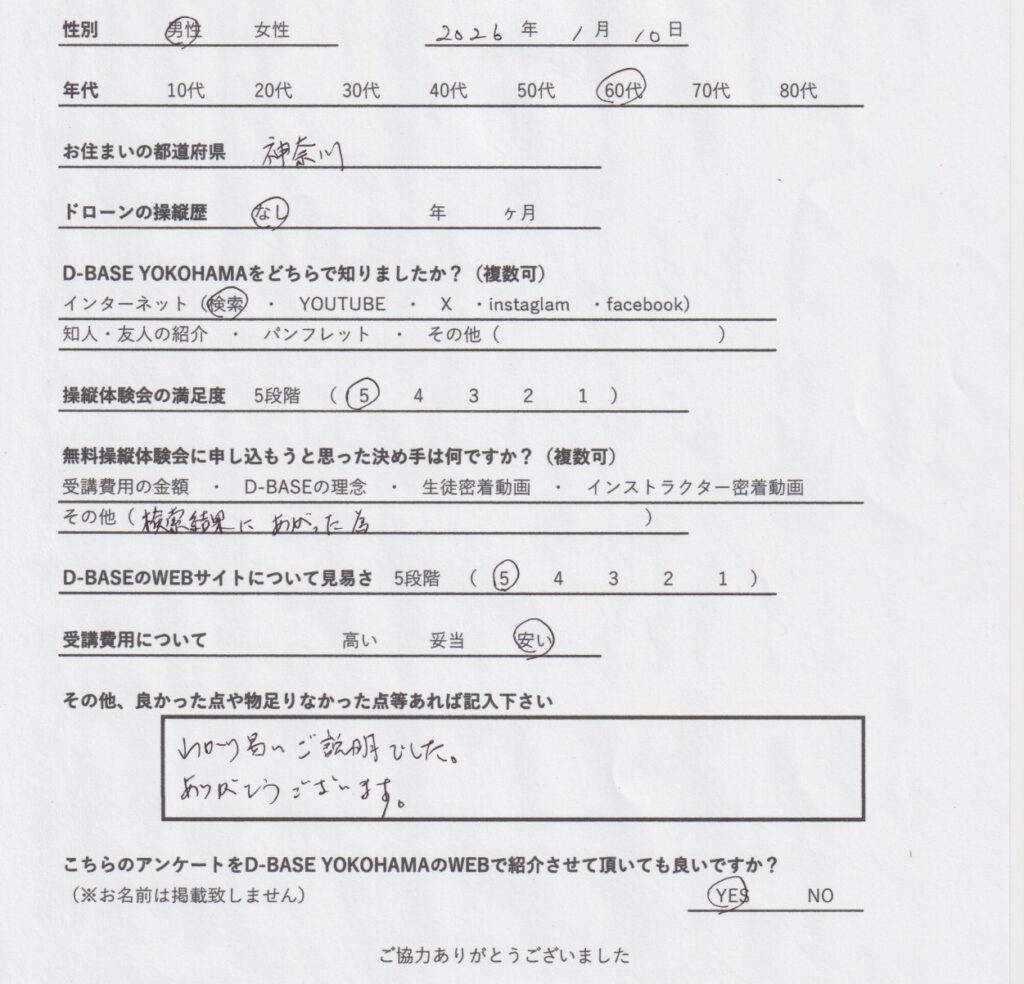 性別 男性 女性 2026 年 1 月 10 日
年代 10代 20代 30代 40代 50代 60代 70代 80代
お住まいの都道府県 神奈川
ドローンの操縦歴 なし 年 ヶ月
D-BASE YOKOHAMAをどちらで知りましたか？（複数可）
インターネット（検索 ・ YOUTUBE ・ X ・instaglam ・facebook）
知人・友人の紹介 ・ パンフレット ・ その他（ ）
操縦体験会の満足度 5段階 （ 5 4 3 2 1 ）
無料操縦体験会に申し込もうと思った決め手は何ですか？（複数可）
受講費用の金額 ・ D-BASEの理念 ・ 生徒密着動画 ・ インストラクター密着動画
その他（ 検索結果に あがった為 ）
D-BASEのWEBサイトについて見易さ 5段階 （ 5 4 3 2 1 ）
受講費用について 高い 妥当 安い
その他、良かった点や物足りなかった点等あれば記入下さい
易い ご説明でした。
ありがとうございます。
こちらのアンケートをD-BASE YOKOHAMAのWEBで紹介させて頂いても良いですか？
（※お名前は掲載致しません） YES NO
ご協力ありがとうございました